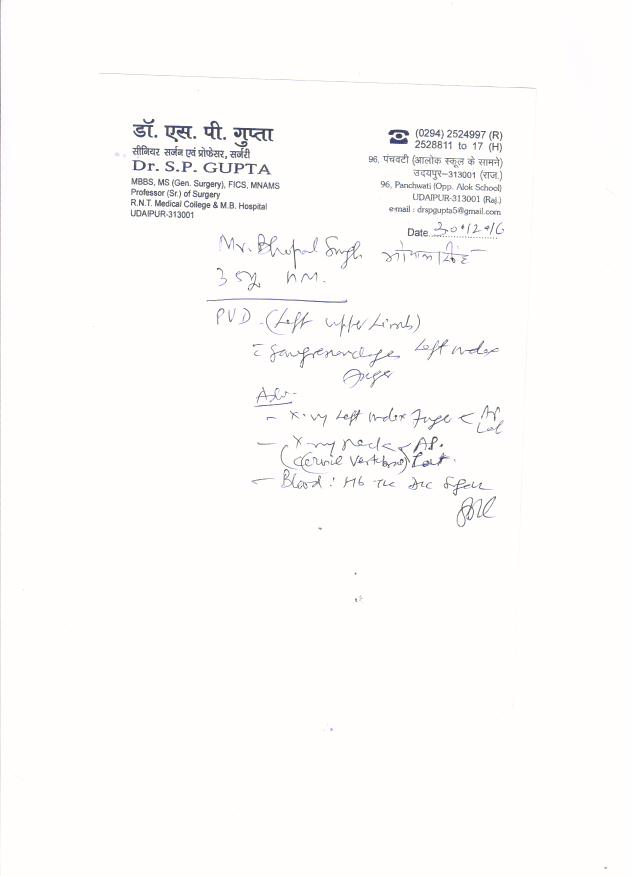 डॉ. एस. पी. गुप्ता
सीनियर सर्जन एवं प्रोफेसर, सर्जरी
Dr. S.P. GUPTA
MBBS, MS (Gen. Surgery), FICS, MNAMS
Professor (Sr.) of Surgery
R.N.T. Medical College & M.B. Hospital
UDAIPUR-313001
(0294) 2524997 (R)
2528811 to 17 (H)
96, पंचवटी (आलोक स्कूल के सामने)
उदयपुर-313001 (राज.)
96, Panchwati (Opp. Alok School)
UDAIPUR-313001 (Raj.)
e-mail : drspgupta5@gmail.com
Date
Mr. Bhopal Singh
PVD. (Left upper Limb)
Left index
finger
Adv.
- X-ray Left index finger < AP Lat
- X-ray neck < AP.
(Cervic Vertebrae) Lat.
- Blood : Hb TLC DLC Sugar